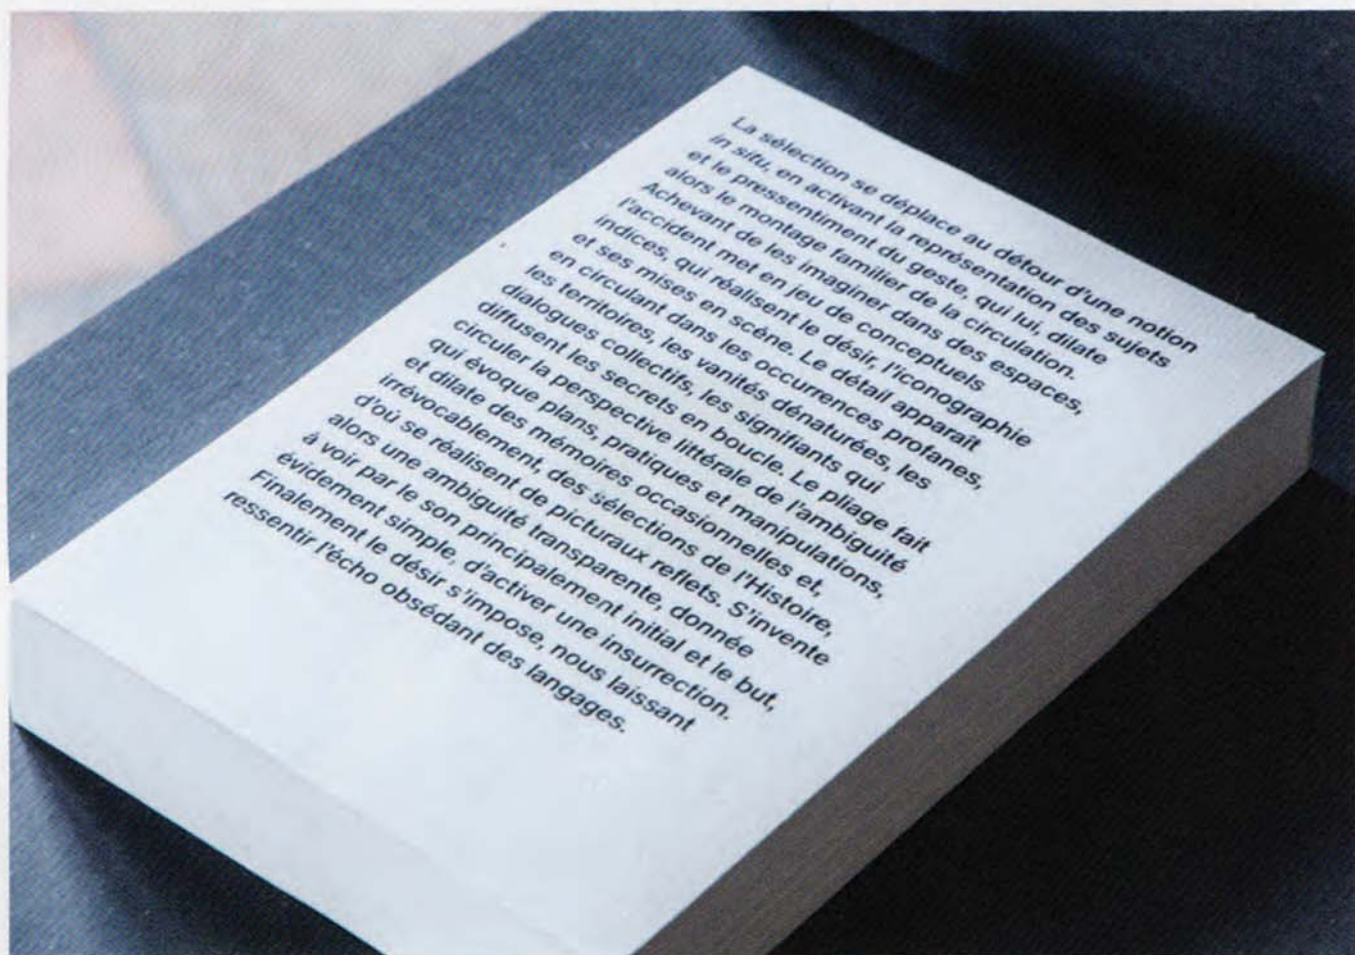 La sélection se déplace au détour d'une notion
in situ, en activant la représentation des sujets
et le pressentiment du geste, qui lui, dilate
alors le montage familier de la circulation.
Achevant de les imaginer dans des espaces,
l'accident met en jeu de conceptuels
indices, qui réalisent le désir, l'iconographie
et ses mises en scène. Le détail apparaît
en circulant dans les occurrences profanes,
les territoires, les vanités dénaturées, les
dialogues collectifs, les signifiants qui
diffusent les secrets en boucle. Le pliage fait
circuler la perspective littérale de l'ambiguité
qui évoque plans, pratiques et manipulations,
et dilate des mémoires occasionnelles et,
irrévocablement, des sélections de l'Histoire,
d'où se réalisent de picturaux reflets. S'invente
alors une ambiguité transparente, donnée
à voir par le son principalement initial et le but,
évidement simple, d'activer une insurrection.
Finalement le désir s'impose, nous laissant
ressentir l'écho obsédant des langages.